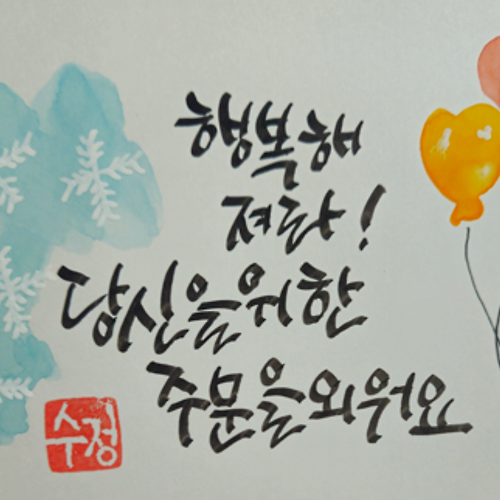 행복해
져라!
당신을위한
주문을외워요
수정